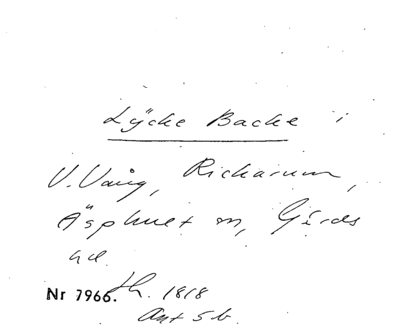 Lÿcke Backe i
V. Vång, Rickarum,
Äsphult m, Gärds
hd.
Nr 7966. th. 1818
Akt 5 b